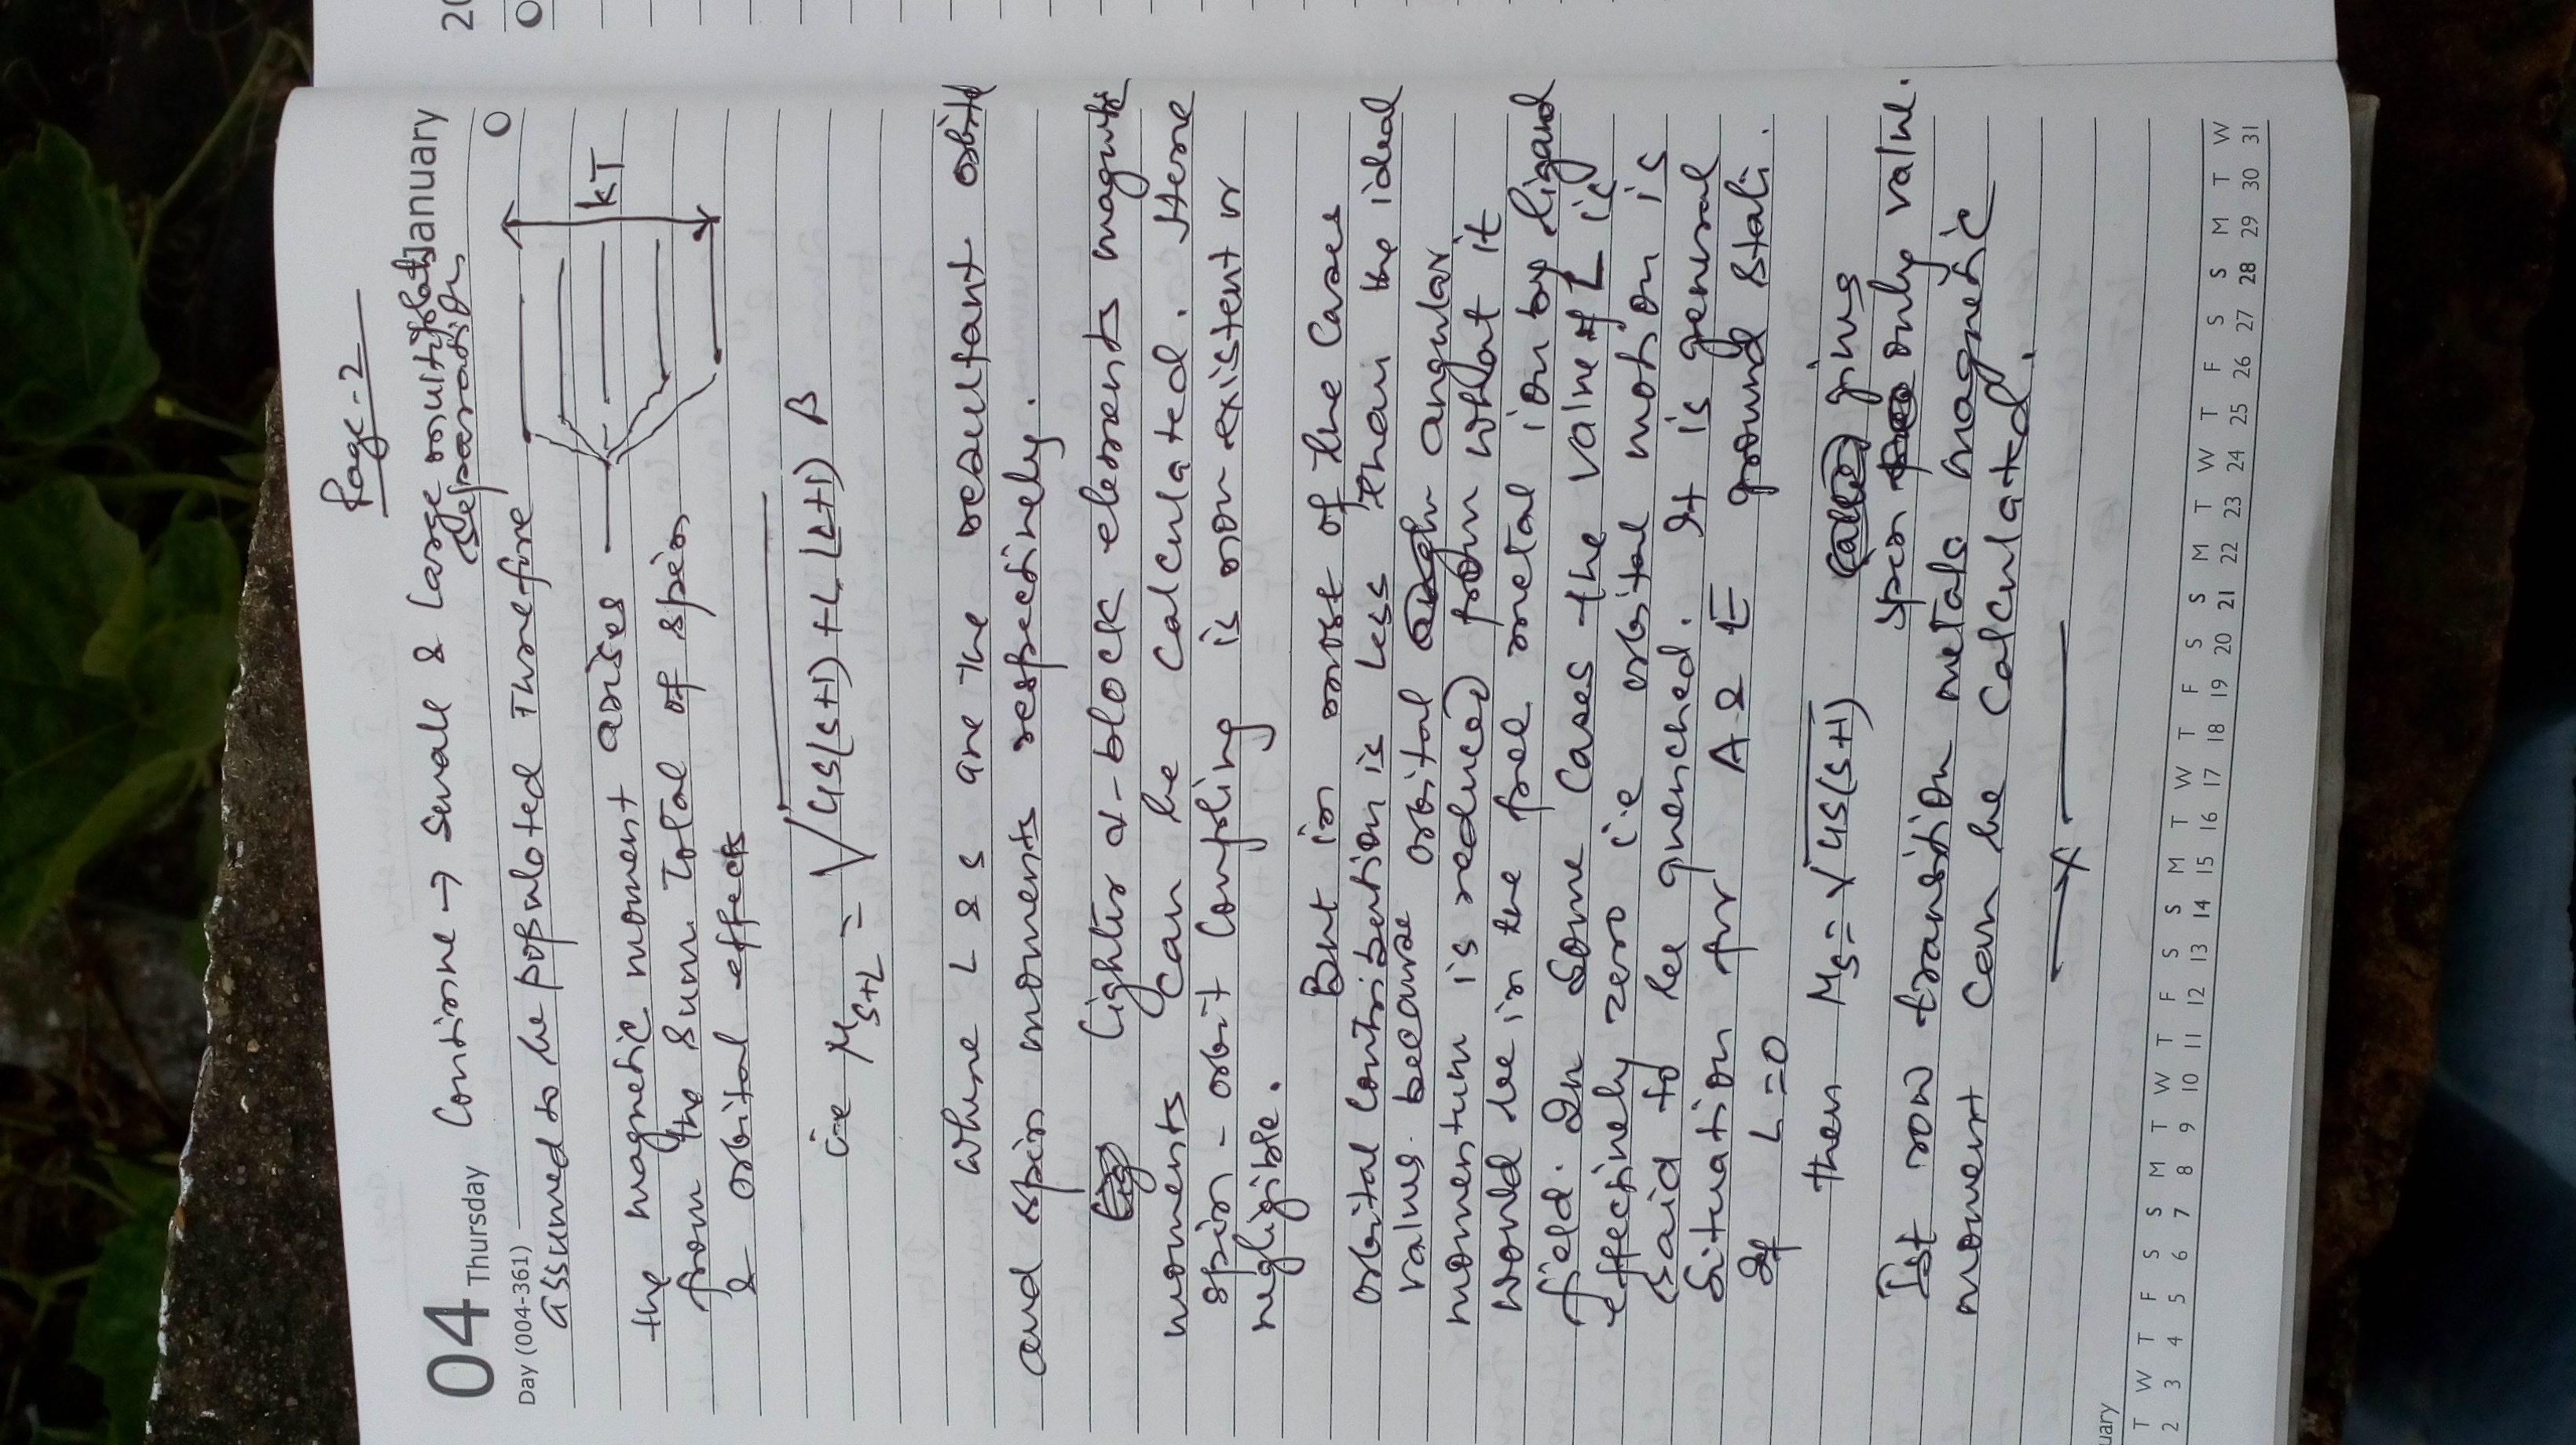 Page-2
04 Thursday
January
20
Day (004-361)
Continue → Small & Large multiplate
separation
assumed to be populated Therefore
kT
the magnetic moment arises
from the sum Total of spin
& orbital effects
i.e μS+L = √4S(S+1)+L(L+1) β
where L & S are the resultant orbital
and spin moments respectively.
Lighter d-block elements magnetic
moments can be calculated. Here
spin-orbit coupling is non-existent or
negligible.
But in most of the cases
orbital contribution is less than the ideal
values because orbital angular
momentum is reduced from what it
would be in the free metal ion by ligand
field. In some cases the value of L is
effectively zero i.e orbital motion is
said to be quenched. It is general
situation for A & E ground state.
If L=0
then Ms=√4S(S+1) gives
spin only value.
Ist row transition metals magnetic
moment can be calculated.
—x—
uary
T W T F S S M T W T F S S M T W T F S S M T W T F S S M T W
2 3 4 5 6 7 8 9 10 11 12 13 14 15 16 17 18 19 20 21 22 23 24 25 26 27 28 29 30 31